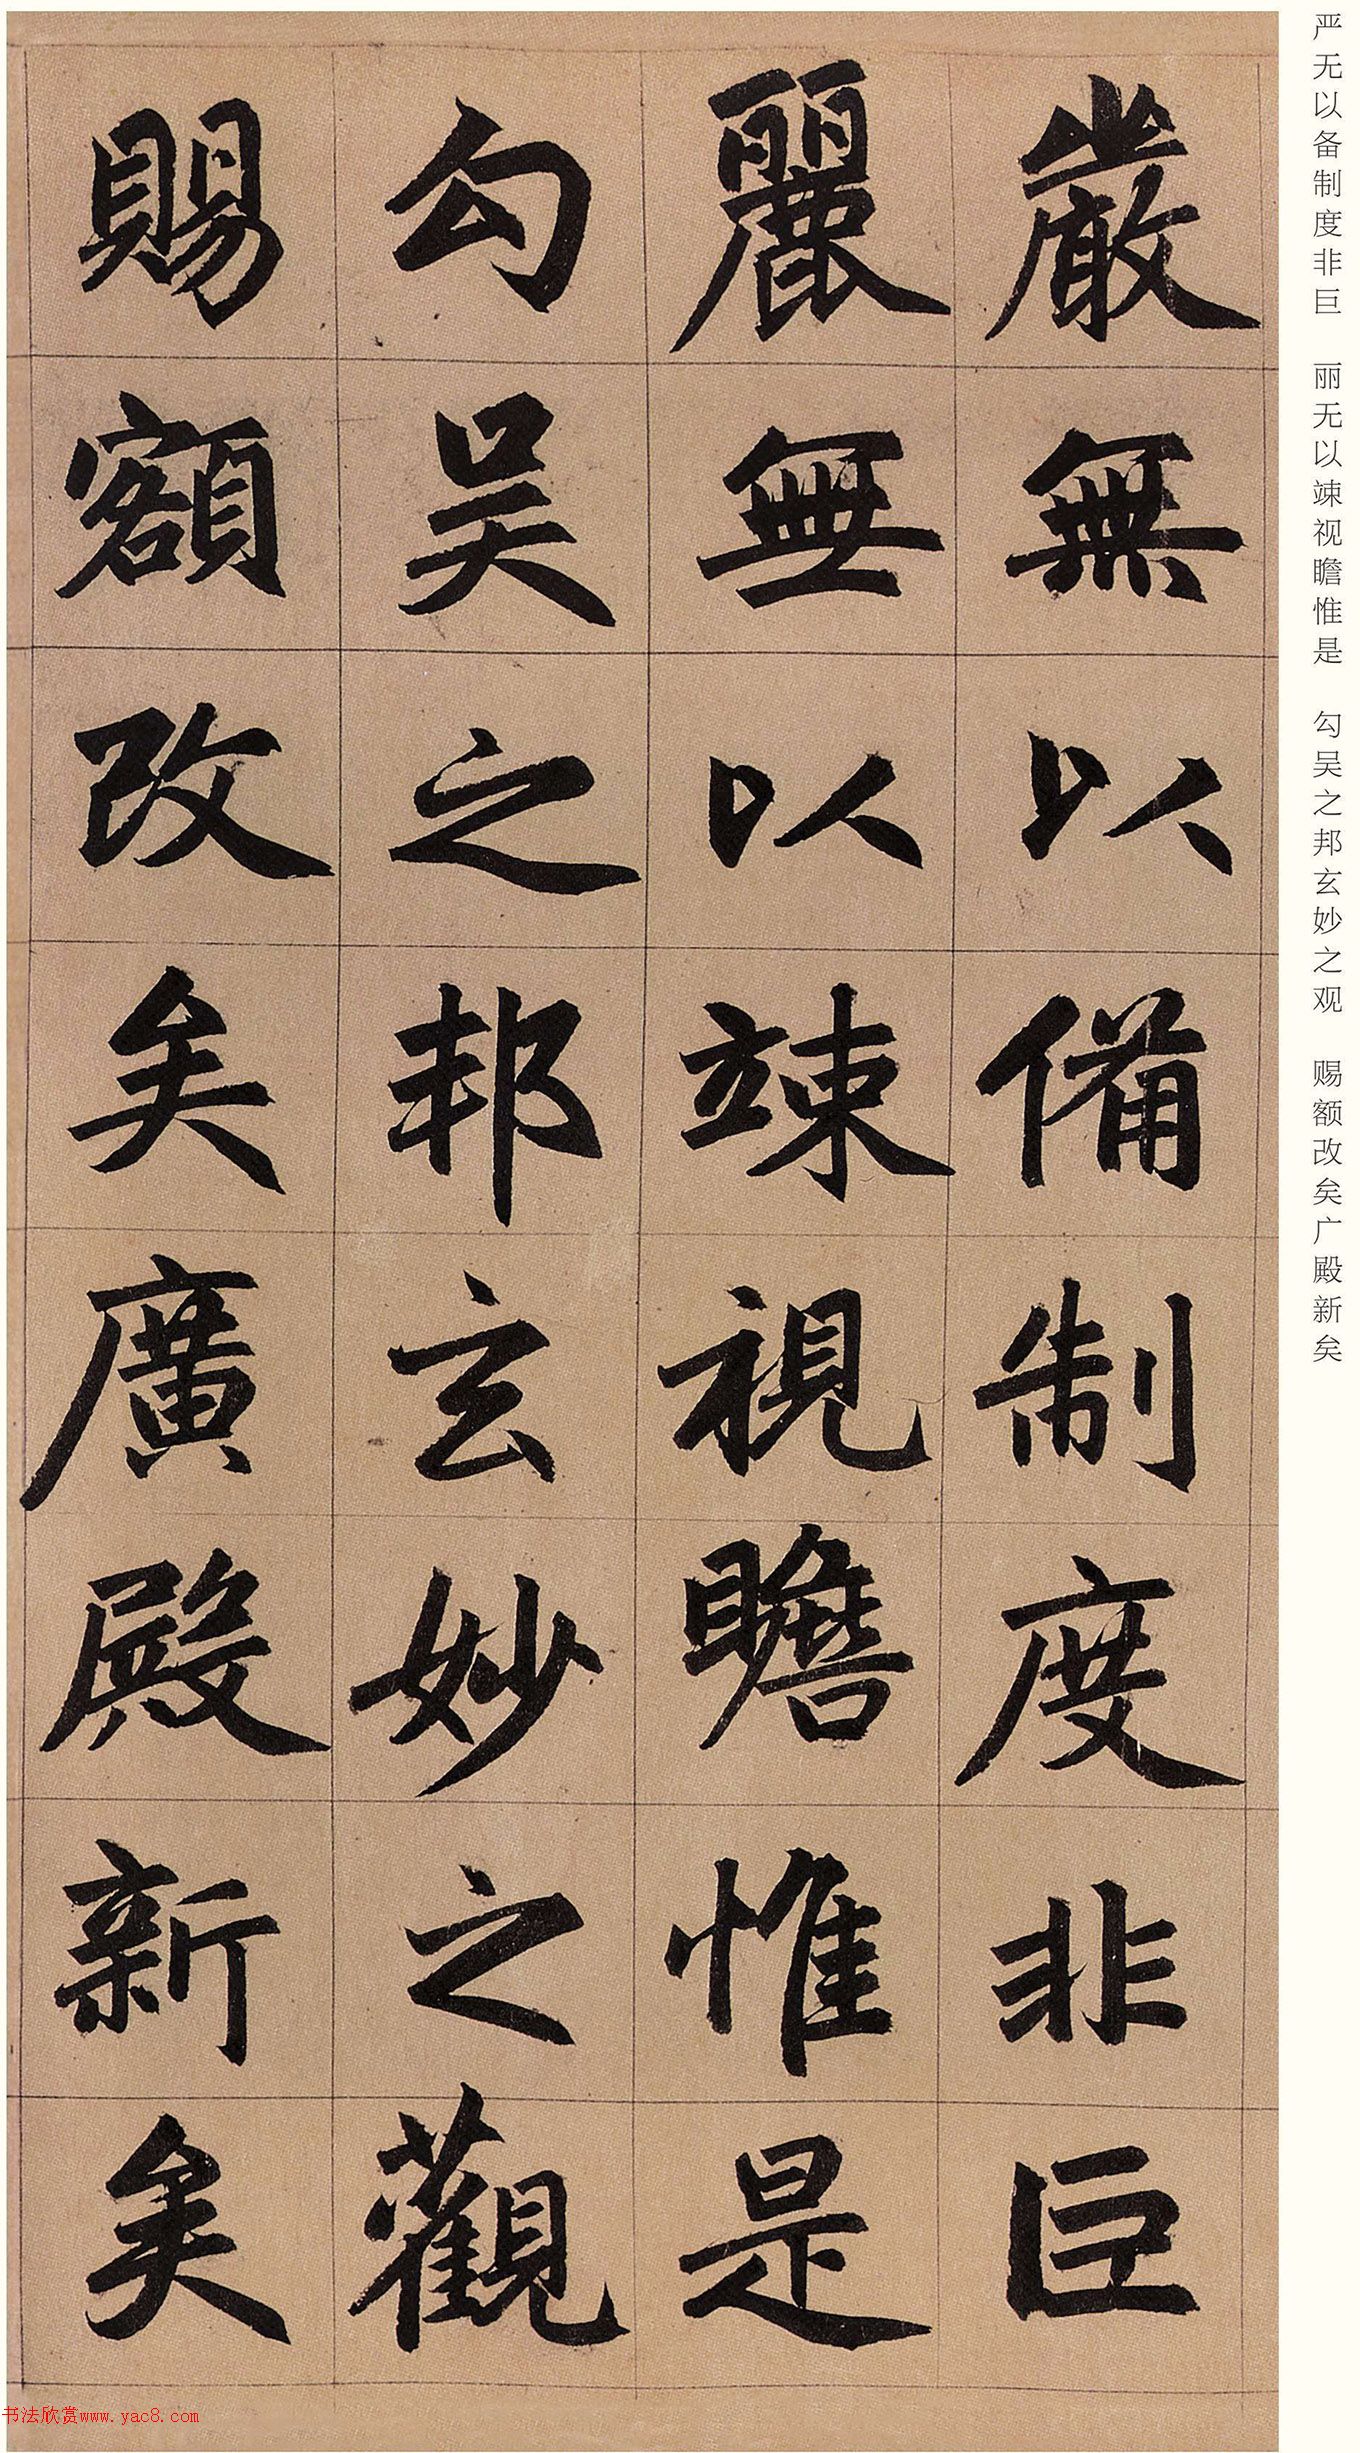 严无以备制度非巨 丽无以竦视瞻惟是 勾吴之邦玄妙之观 赐额改矣广殿新矣
嚴無以備制度非巨
麗無以竦視瞻惟是
勾吴之邦玄妙之觀
賜額改矣廣殿新矣
书法欣赏www.yac8.com